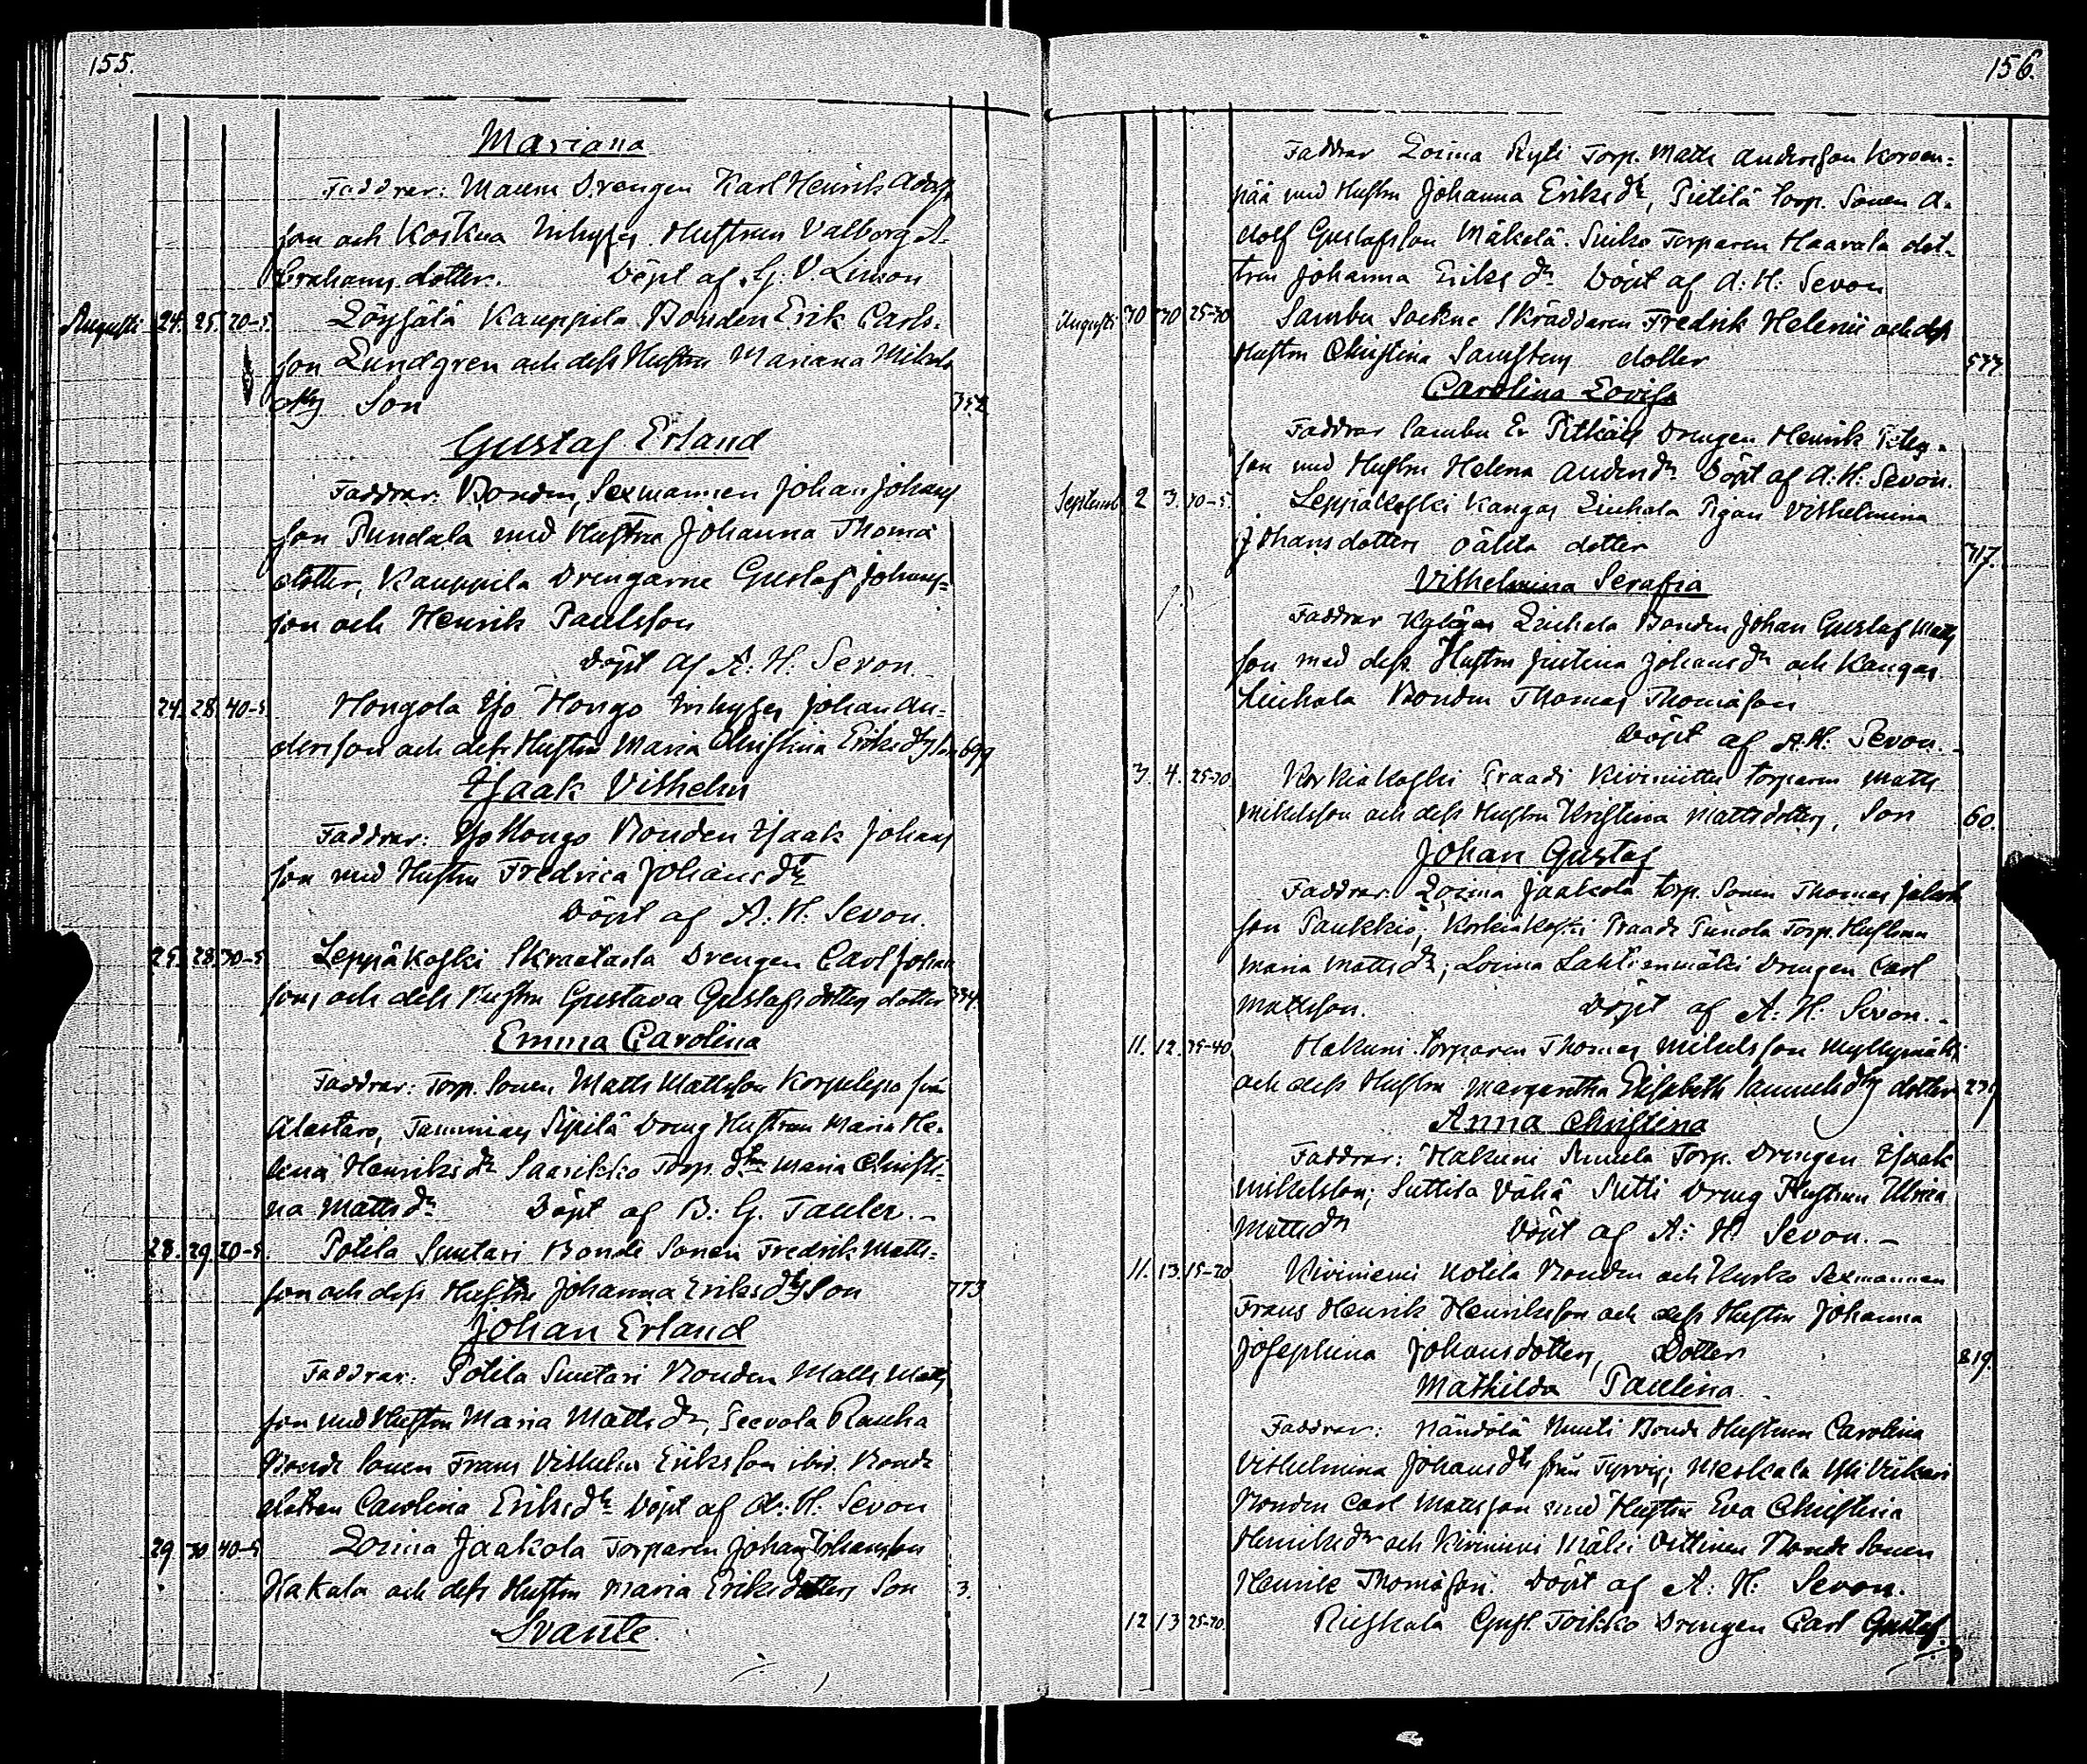 155.
Mariana
Faddrar: Mauru Drengen Karl Henrik Adolfs
son och Koskua Inhyses Hustrun Valborg A-
brahams dotter. Döpt af G. V. Limon
Augusti 24. 25. 20-5. Löysälä Kauppila Bonden Erik Carls-
son Lundgren och dess Hustru Mariana Mikels
dtrs Son 352
Gustaf Erland
Faddrar: Bonden, Sexmannen Johan Johans
son Pundala med Hustru Johanna Thomä
dotter, Kauppila Drengarne Gustaf Johans-
son och Henrik Paulsson
Döpt af A. H. Sevon.
24. 28. 40-5. Hongola Yso Hongo Inhyses Johan An-
dersson och dess Hustru Maria Christina Eriksdtrs Son 699
Isaak Vilhelm
Faddrar: Yso Hongo Bonden Isaak Johans
son med Hustru Fredrica Johansdtr
Döpt af A. H. Sevon.
25. 28. 30-5. Leppäkoski Skraatarla Drengen Carl Johans
sons och dess Hustru Gustava Gustafs dotters dotter 334.
Emma Carolina
Faddrar: Torp. Sonen Matts Mattsson Korpulepo från
Alastaro, Tammiais Sipilä Dreng Hustrun Maria He-
lena Henriksdr Saarikko Torp. dtrn Maria Christi-
na Mattsdr Döpt af B. G. Tauler.
28. 29. 20-5. Potila Suutari Bonde Sonen Fredrik Matts-
son och dess Hustru Johanna Eriksdtrs Son 773
Johan Erland
Faddrar: Potila Suutari Bonden Matts Matts
son med Hustru Maria Mattsdr, Peevola Rauha
Bonde Sonen Frans Vilhelm Eriksson ibid. Bonde
dottren Carolina Eriksdr Döpt af A. H. Sevon
29 30 40-5 Loima Jaakola Torparen Johan Johansson
Hakala och dess Hustru Maria Eriksdotters Son 3.
Svante.
156.
Faddrar Loima Ryti Torp. Matts Andersson Korven-
pää med Hustru Johanna Eriksdr, Pietilä Torp. Sonen A-
dolf Gustafsson Mäkelä. Suiko Torparen Haavala dot-
tren Johanna Eriks dr Döpt af A: H: Sevon
Augusti 30 30 25-30 Sambu Sockne Skräddaren Fredrik Helenii och dess
Hustru Christina Samstens dotter 577.
Carolina Lovisa
Faddrar Sambu Er Pitkäs Drengen Henrik Peters-
son med Hustru Helena Andersdr Döpt af A: H: Sevon.
Septemb 2 3. 30-5. Leppäkoski Kangas Liuhala Pigan Vilhelmina
Johansdotters oäkta dotter 317.
Vilhelmina Serafia
Faddrar Kylöjas Liuhala Bonden Johan Gustaf Matts
son med dess Hustru Justina Johansdr och Kangas
Liuhala Bonden Thomas Thomäson
Döpt af A. H: Sevon.
3. 4. 25-30 Korkiakoski Praadi Kiviniittu Torparen Matts
Mikelsson och dess Hustru Kristina Mattsdotters, Son 60.
Johan Gustaf
Faddrar: Loima Jaakola Torp. Sonen Thomas Jakobs
son Paukkio; Korkiakoski Praadi Piinola Torp. Hustrun
Maria Mattsdr; Loima Lahtienmäki Drengen Carl
Mattsson. Döpt af A: H: Sevon.
11. 12. 35-40 Hakuni Torparen Thomas Mikelsson Myllymäki
och dess Hustru Margaretha Elisabeth Samuelsdtrs dotter 239
Anna Christina
Faddrar: Hakuni Torp. Drengen Isaak
Mikelsson; Suttila Vähä Sutti Dreng Hustrun Ulrica
Mattsdr Döpt af A: H: Sevon.
11. 13. 15-20 Kiviniemi Kotila Bonden och Kyrko Sexmannen
Frans Henrik Henriksson och dess Hustru Johanna
Josephina Johansdotters, Dotter 819.
Mathilda Paulina.
Faddrar: Nändölä Nuuti Bonde Hustrun Carolina
Vilhelmina Johansdtr från Tyrvis; Meskala Yli Veikari
Bonden Carl Mattsson med Hustru Eva Christina
Henriksdr och Kiviniemi Mäki Vellinen Bonde Sonen
Henric Thomäson. Döpt af A: H: Sevon.
12 13 25-30. Rieskala Toikko Drengen Carl Gustaf